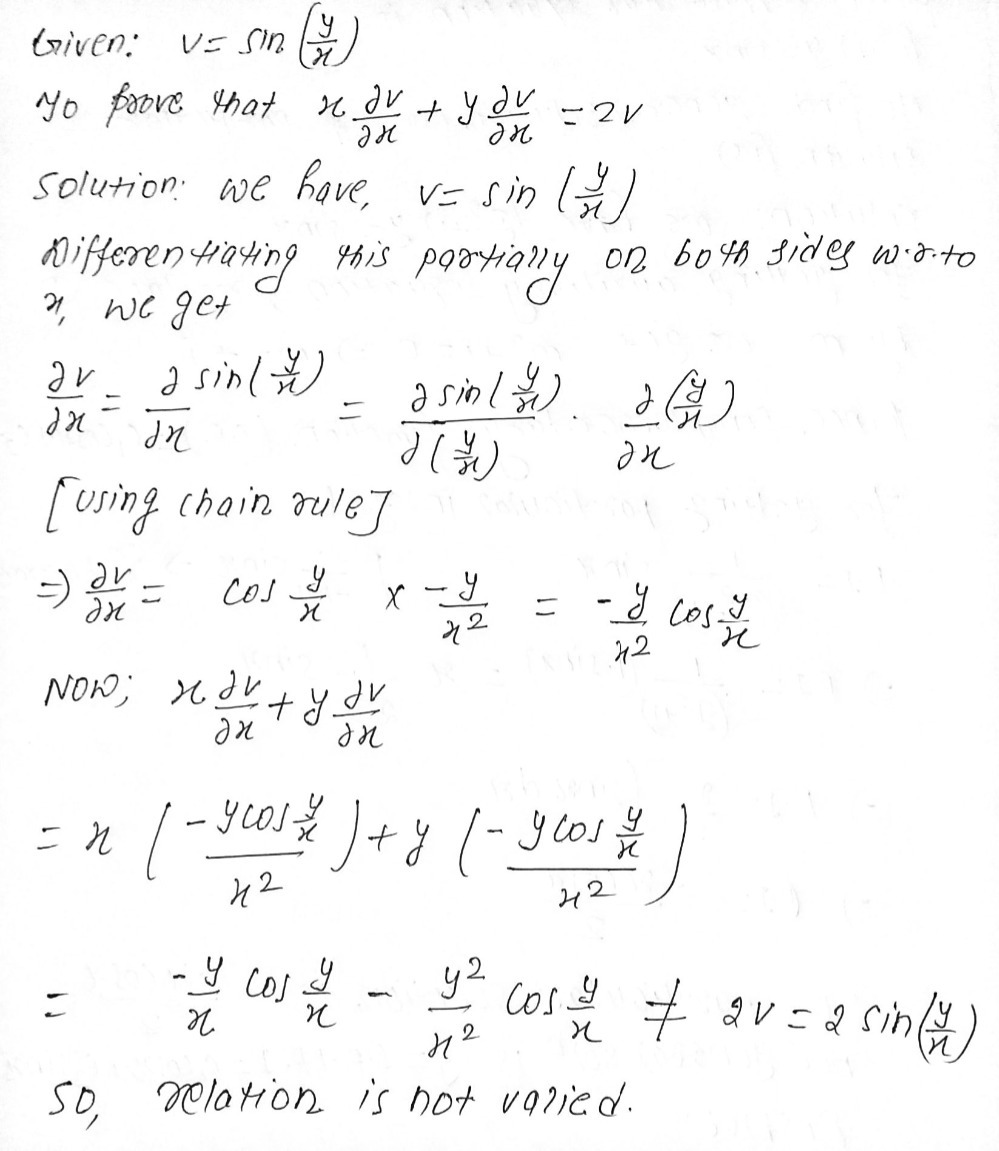 Given: v = sin (y/x)
To prove that x ∂v/∂x + y ∂v/∂x = 2v
Solution: we have, v = sin (y/x)
Differentiating this partially on both sides w.r.to
x, we get
∂v/∂x = ∂ sin(y/x)/∂x = ∂ sin(y/x)/∂(y/x) . ∂(y/x)/∂x
[using chain rule]
=> ∂v/∂x = cos y/x × -y/x² = -y/x² cos y/x
Now; x ∂v/∂x + y ∂v/∂x
= x (-y cos y/x / x²) + y (-y cos y/x / x²)
= -y/x cos y/x - y²/x² cos y/x ≠ 2v = 2 sin(y/x)
So, relation is not varied.